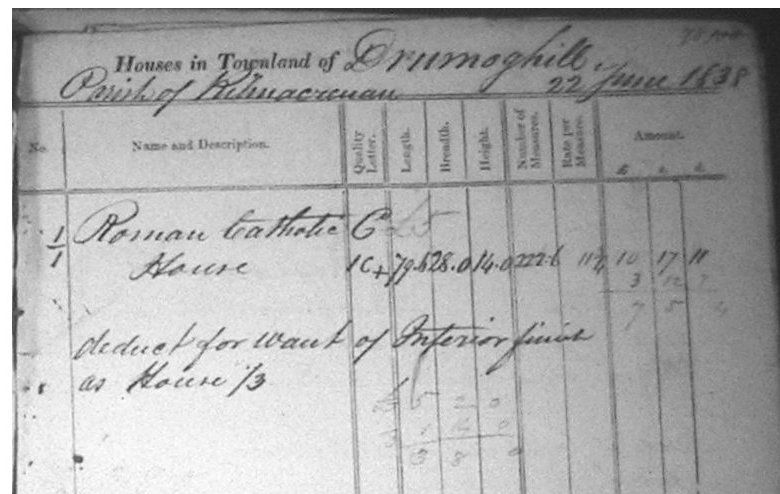 Houses in Townland of Drumoghill.
Parish of Kilmacrenan 22 June 1838
No. Name and Description. Quality Letter. Length. Breadth. Height. Number of Measures. Rate per Measure. Amount.
£. s. d.
1/1 Roman Catholic C
House 1C+ 79.6 28.0 14.0 222.6 10 17 11
3 12
7 5
deduct for want of Inferior finish
as House 1/3